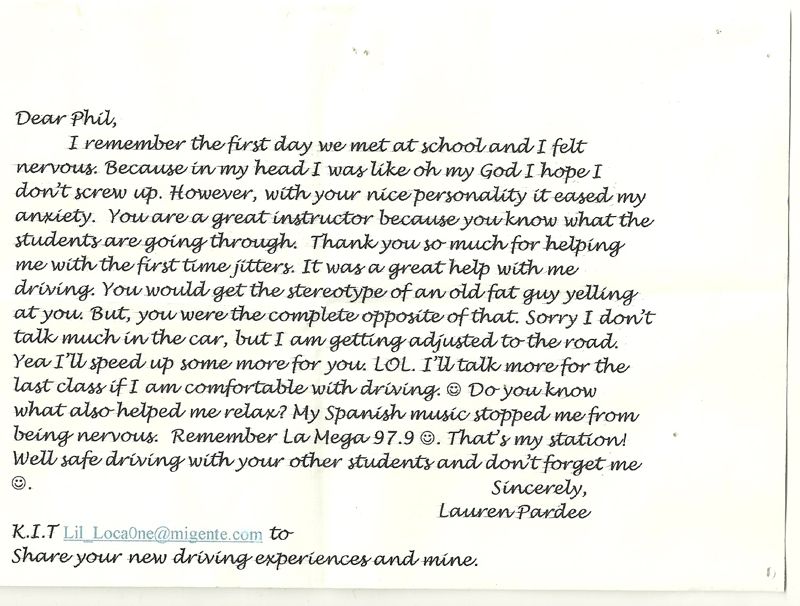 Dear Phil,
I remember the first day we met at school and I felt
nervous. Because in my head I was like oh my God I hope I
don't screw up. However, with your nice personality it eased my
anxiety. You are a great instructor because you know what the
students are going through. Thank you so much for helping
me with the first time jitters. It was a great help with me
driving. You would get the stereotype of an old fat guy yelling
at you. But, you were the complete opposite of that. Sorry I don't
talk much in the car, but I am getting adjusted to the road.
Yea I'll speed up some more for you. LOL. I'll talk more for the
last class if I am comfortable with driving. ☺ Do you know
what also helped me relax? My Spanish music stopped me from
being nervous. Remember La Mega 97.9 ☺. That's my station!
Well safe driving with your other students and don't forget me
☺.
Sincerely,
Lauren Pardee
K.I.T Lil_Loca0ne@migente.com to
Share your new driving experiences and mine.